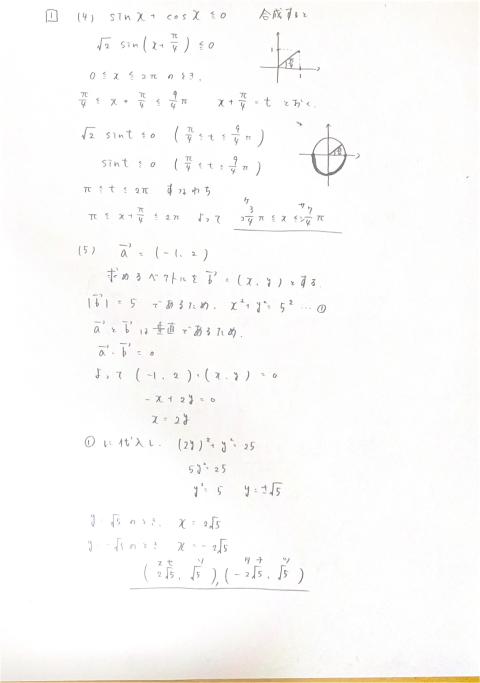 1 (4) sin x + cos x ≤ 0 合成すると
√2 sin(x + π/4) ≤ 0
0 ≤ x ≤ 2π のとき、
π/4 ≤ x + π/4 ≤ 9/4 π x + π/4 = t とおく、
√2 sin t ≤ 0 (π/4 ≤ t ≤ 9/4 π)
sin t ≤ 0 (π/4 ≤ t ≤ 9/4 π)
π ≤ t ≤ 2π すなわち
π ≤ x + π/4 ≤ 2π よって 3/4 π ≤ x ≤ 7/4 π
(5) a→ = (-1, 2)
求めるベクトルを b→ = (x, y) とする
|b→| = 5 であるため、 x² + y² = 5² … ①
a→ と b→ は垂直であるため、
a→・b→ = 0
よって (-1, 2)・(x, y) = 0
-x + 2y = 0
x = 2y
① に代入し、 (2y)² + y² = 25
5y² = 25
y² = 5 y = ±√5
y = √5 のとき、 x = 2√5
y = -√5 のとき x = -2√5
(2√5, √5), (-2√5, √5)